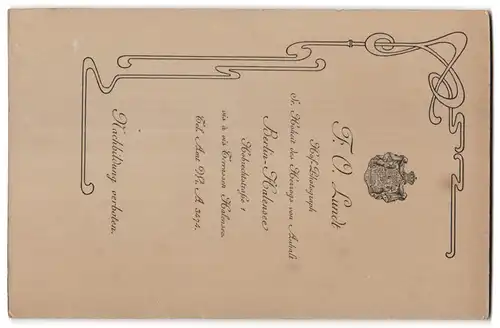 F. O. Lundt
Hof-Photograph
Sr. Hoheit des Herzogs von Anhalt
Berlin-Halensee
Hobrechtstraße 1
vis à vis Terrassen Halensee
Tel. Amt W. A. 3474.
Nachbildung verboten.